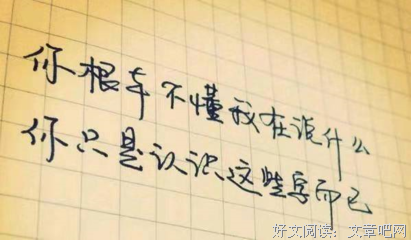 你根本不懂我在说什么
你只是认识这些字而已
好文阅读：文章吧网